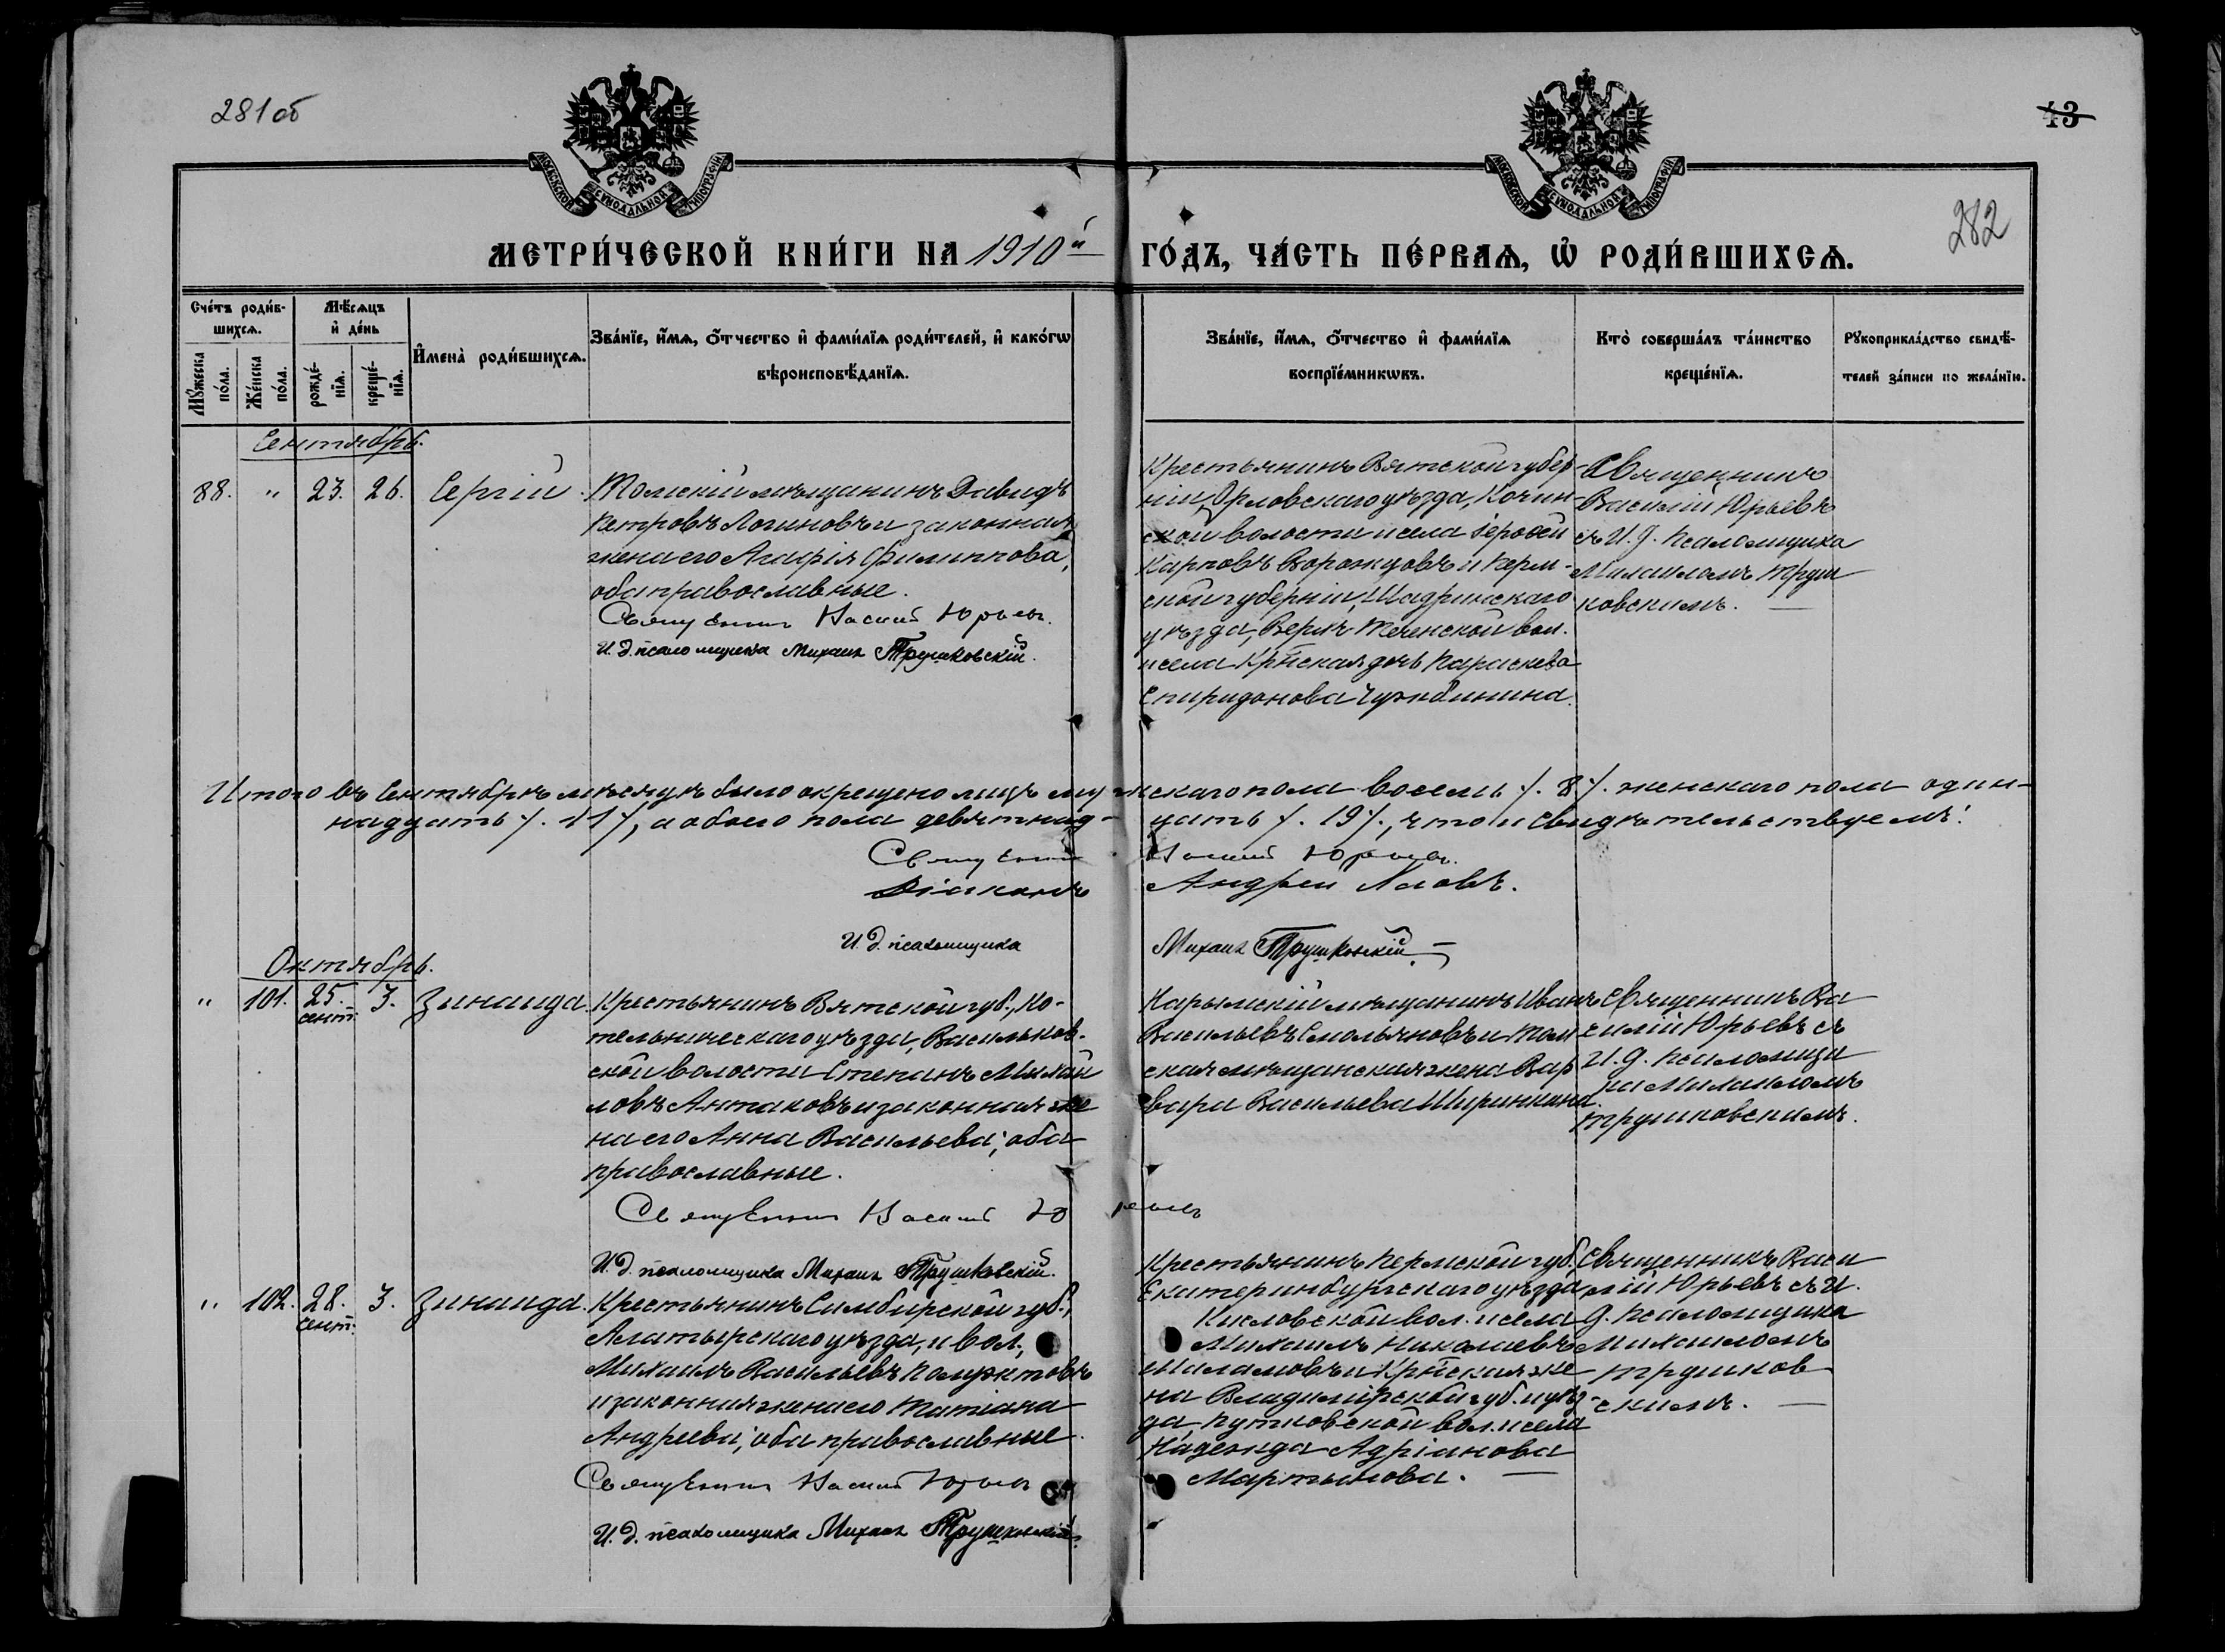 281 об
43
282
МОСКОВСКОЙ СѴНОДАЛЬНОЙ ТИПОГРАФІИ
МОСКОВСКОЙ СѴНОДАЛЬНОЙ ТИПОГРАФІИ
МЕТРИ́ЧЕСКОЙ КНИ́ГИ НА 1910й ГО́ДЪ, ЧА́СТЬ ПЕ́РВАѦ, Ѿ РОДИ́ВШИХСѦ.
Сче́тъ роди́в-
шихсѧ.
Мꙋ́жеска по́ла.
Же́нска по́ла.
Мѣ́сѧцъ
и҆ де́нь
рожде́-
нїѧ.
креще́-
нїѧ.
И҆мена̀ роди́вшихсѧ.
Зва́нїе, и҆́мѧ, ѻ҆́тчество и҆ фами́лїѧ роди́телей, и҆ како́гѡ
вѣроисповѣ́данїѧ.
Зва́нїе, и҆́мѧ, ѻ҆́тчество и҆ фами́лїѧ
воспрїе́мникѡвъ.
Кто̀ соверша́лъ та́инство
креще́нїѧ.
Рꙋкоприкла́дство свидѣ́-
телей за́писи по жела́нїю.
Сентябрь.
88. " 23. 26. Сергій.
Томскій мѣщанинъ Давидъ
Петровъ Логиновъ и законная
жена его Агафія Филиппова,
оба православные.
Священникъ Василій Юрьевъ.
И. д. псаломщика Михаилъ Трушковскій.
Крестьянинъ Вятской губер-
ніи, Орловскаго уѣзда, Кочин-
ской волости и села Іерофей
Карповъ Ворожцовъ и Перм-
ской губерніи, Шадринскаго
уѣзда, Верхъ-Теченской вол.
и села кр̃нская дочь Параскева
Спиридонова
Священникъ
Василій Юрьевъ
съ И. д. псаломщика
Михаиломъ Труш
ковскимъ. —
Итого въ Сентябрѣ мѣсяцѣ было окрещено лицъ мужескаго пола восемь /. 8 /. женскаго пола один-
надцать /. 11 /, а обоего пола девятнад-цать /. 19 /., что и свидѣтельствуемъ:
Священникъ Василій Юрьевъ.
Діаконъ Андрей
И. д. псаломщика Михаилъ Трушковскій. —
Октябрь.
" 101. 25. сент. 3. Зинаида.
Крестьянинъ Вятской губ., Ко-
тельническаго уѣзда, Васильков-
ской волости Степанъ Михай
ловъ Антаковъ и законная же
на его Анна Васильева; оба
православные.
Священникъ Василій Юрьевъ
И. д. псаломщика Михаилъ Трушковскій.
Нарымскій мѣщанинъ Иванъ
Васильевъ Смольяновъ и Том
ская мѣщанская жена Вар
вара Васильева Ширинкина.
Священникъ Ва
силій Юрьевъ съ
И. д. псаломщи
ка Михаиломъ
Трушковскимъ.
" 102. 28. сент. 3. Зинаида.
Крестьянинъ Симбирской губ.,
Алатырскаго уѣзда, и вол.,
Михаилъ Васильевъ Полуэктовъ
и законная жена его Татіана
Андреева; оба православные.
Священникъ Василій Юрьевъ
И. д. псаломщика Михаилъ Трушковскій.
Крестьянинъ Пермской губ.,
Екатеринбургскаго уѣзда
Кисловской вол. и села
Михаилъ Николаевъ
Малановъ и кр̃нская же
на Владимірской губ. и уѣз-
да, Путковской вол. и села
Надежда Адріанова
Мартынова. —
Священникъ Васи
лій Юрьевъ съ И.
д. псаломщика
Михаиломъ
Трушков
скимъ. —